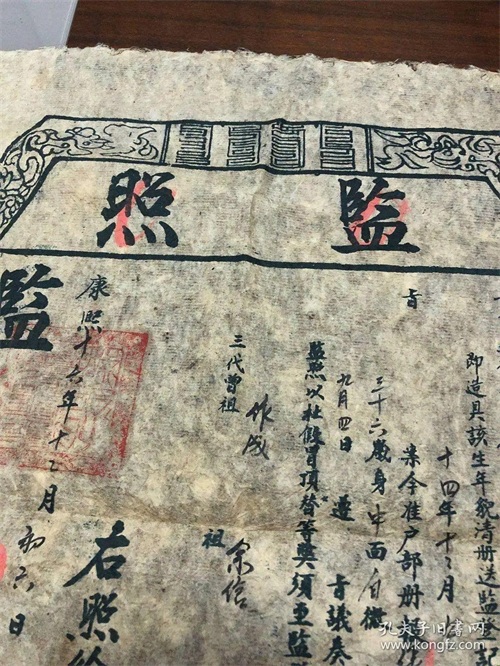 監照
即造具該生年貌清册送監
十四年十二月
案今准户部册
旨
三十六歲身中面白微
九月四日遵旨議奏
監照以杜假冒頂替等獘須至監
三代曾祖作成
祖宗信
康熙十六年十二月初六日
右照給
監
孔夫子旧书网
kongfz.com